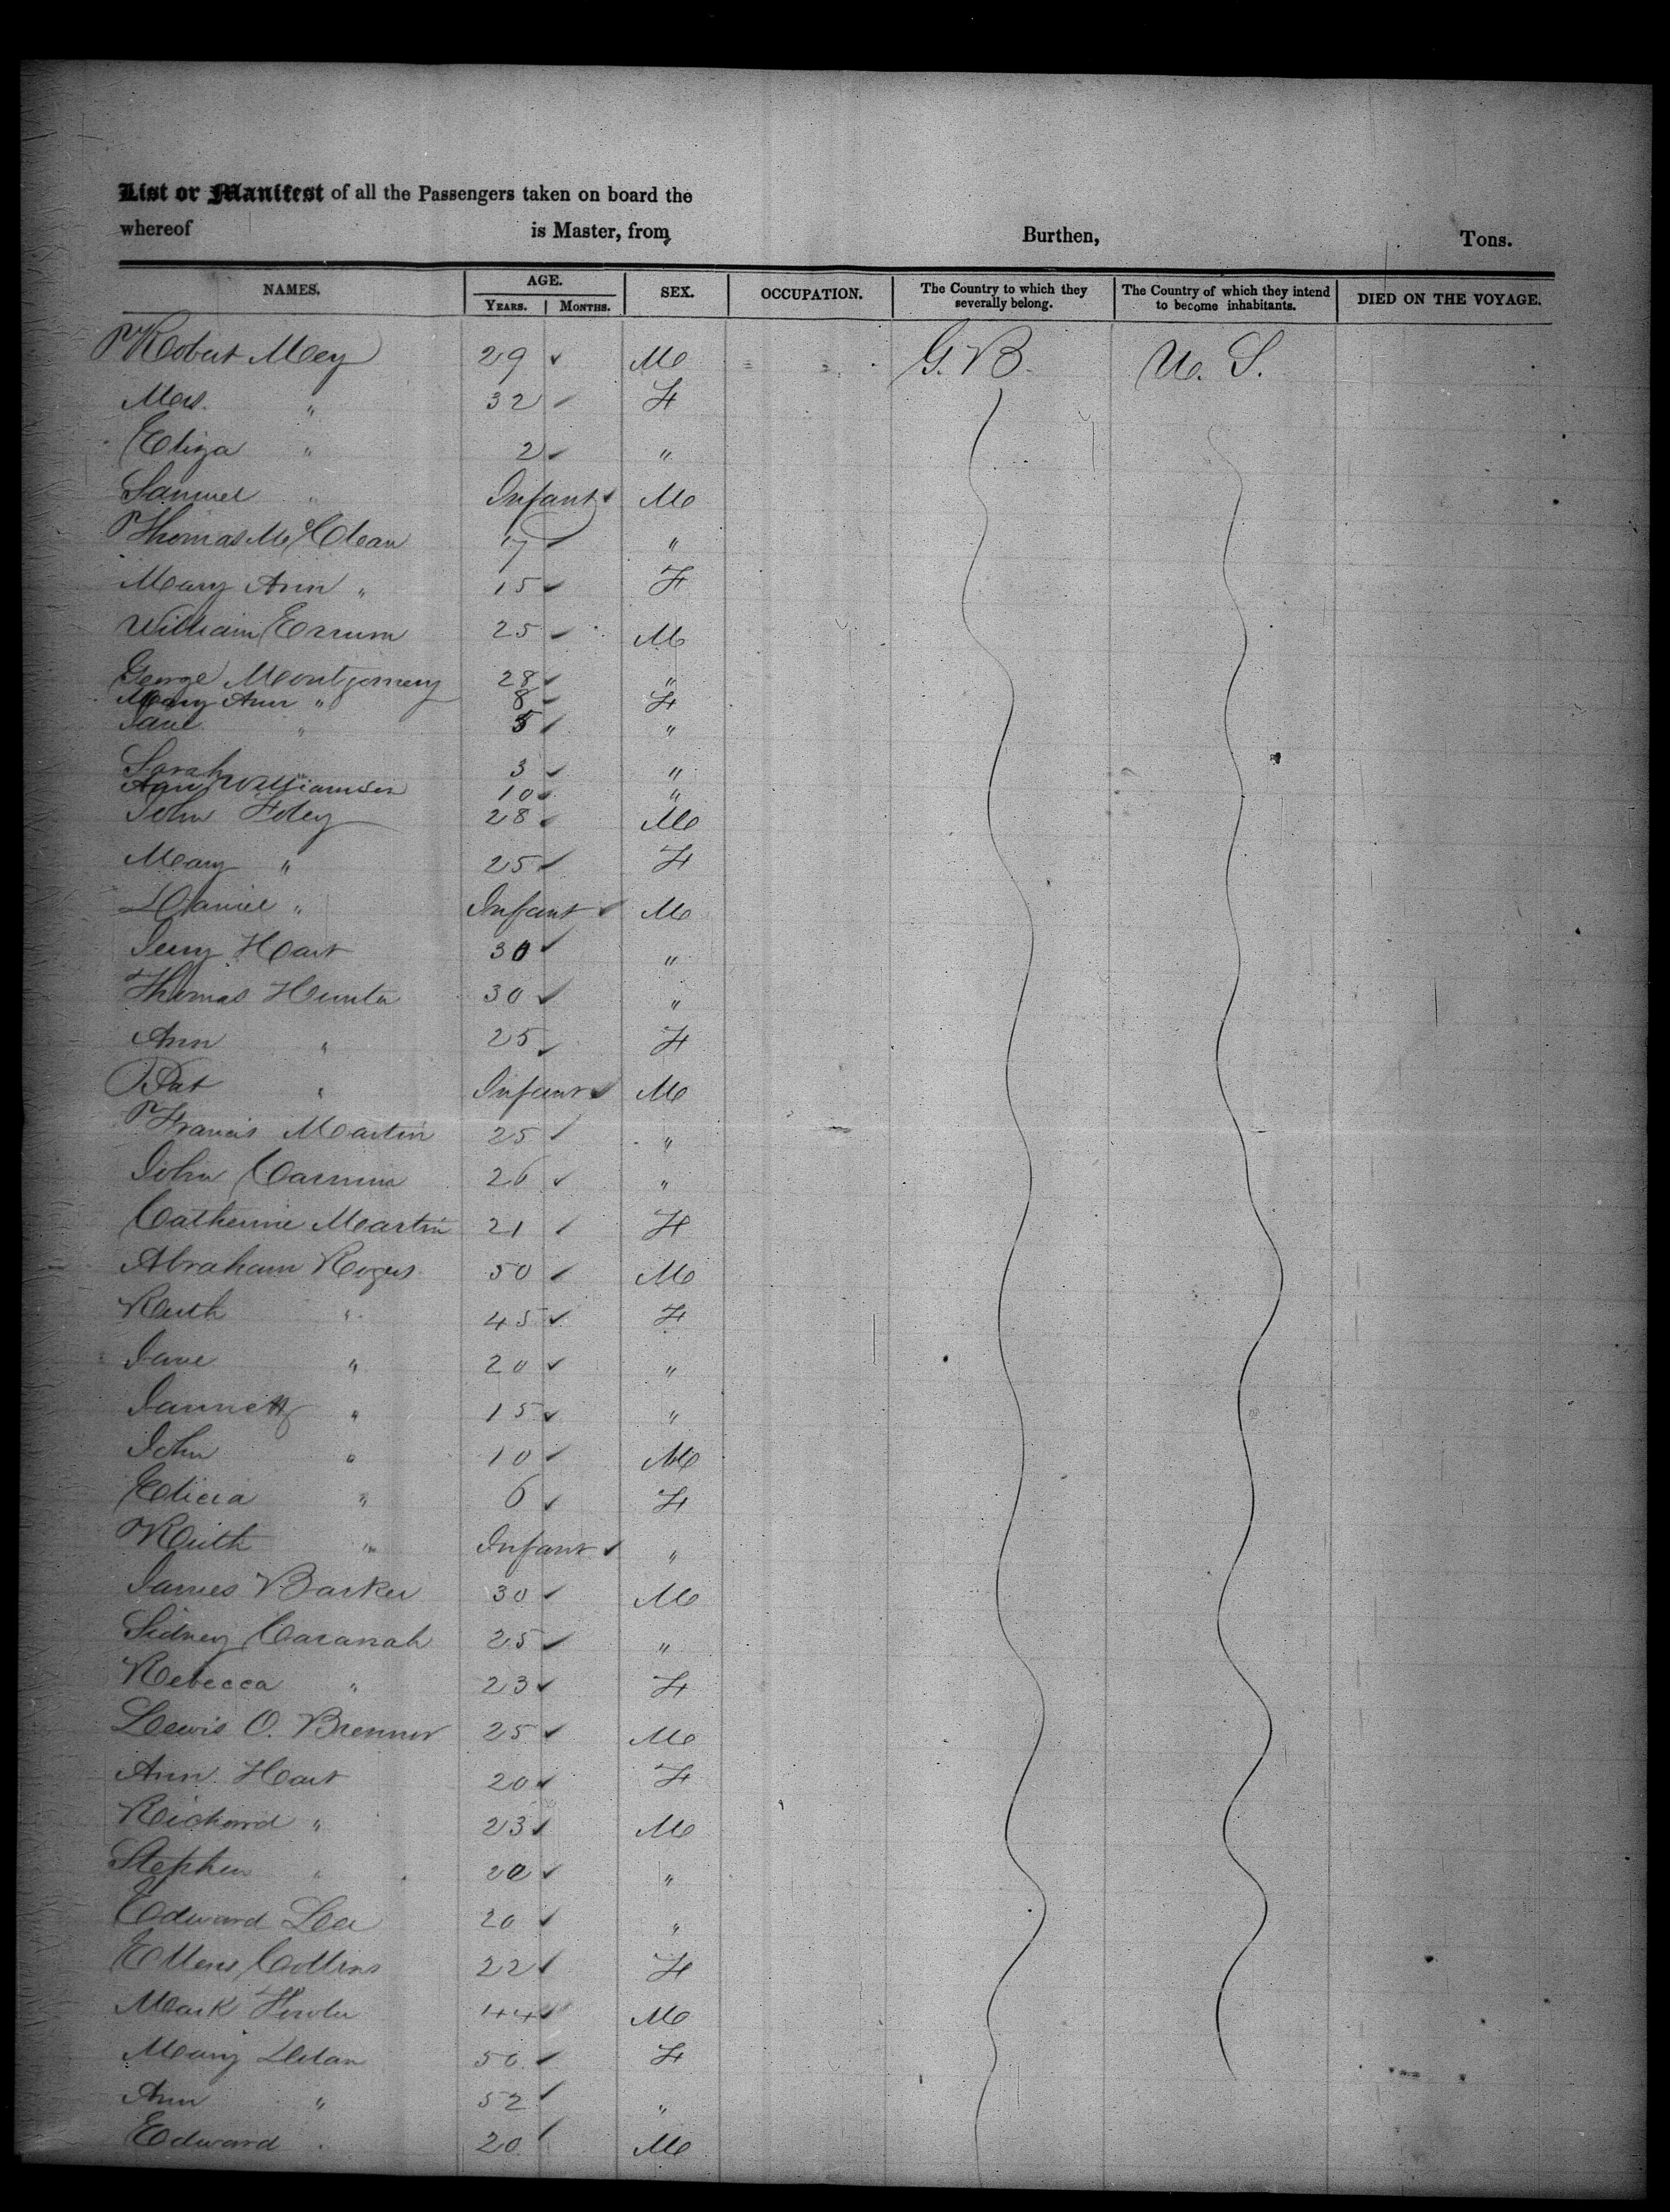 List or Manifest of all the Passengers taken on board the
whereof is Master, from Burthen, Tons.
NAMES. AGE. YEARS. MONTHS. SEX. OCCUPATION. The Country to which they severally belong. The Country of which they intend to become inhabitants. DIED ON THE VOYAGE.
Robert Mey 29 M G.B. U.S.
Mrs. " 32 F
Eliza " 2 "
Samuel " Infant M
Thomas McClean 17 "
Mary Ann " 15 F
William 25 M
George Montgomery 28 "
Mary Ann " 8 F
Jane " 5 "
Sarah " 3 "
Ann Williamson 10 "
John Foley 28 M
Mary " 25 F
Daniel " Infant M
Jerry Hart 30 "
Thomas Hunter 30 "
Ann " 25 F
Pat " Infant M
Francis Martin 25 "
John 26 "
Catherine Martin 21 F
Abraham Rogers 50 M
Ruth " 45 F
Jane " 20 "
Jannett " 15 "
John " 10 M
Elicia " 6 F
Ruth " Infant "
James Barker 30 M
Sidney Cavanah 25 "
Rebecca " 23 F
Lewis O. Brennor 25 M
Ann Hart 20 F
Richard " 23 M
Stephen " 20 "
Edward Lea 20 "
Ellens Collins 22 F
Mark Fowler 44 M
Mary Dolan 50 F
Ann " 52 "
Edward " 20 M